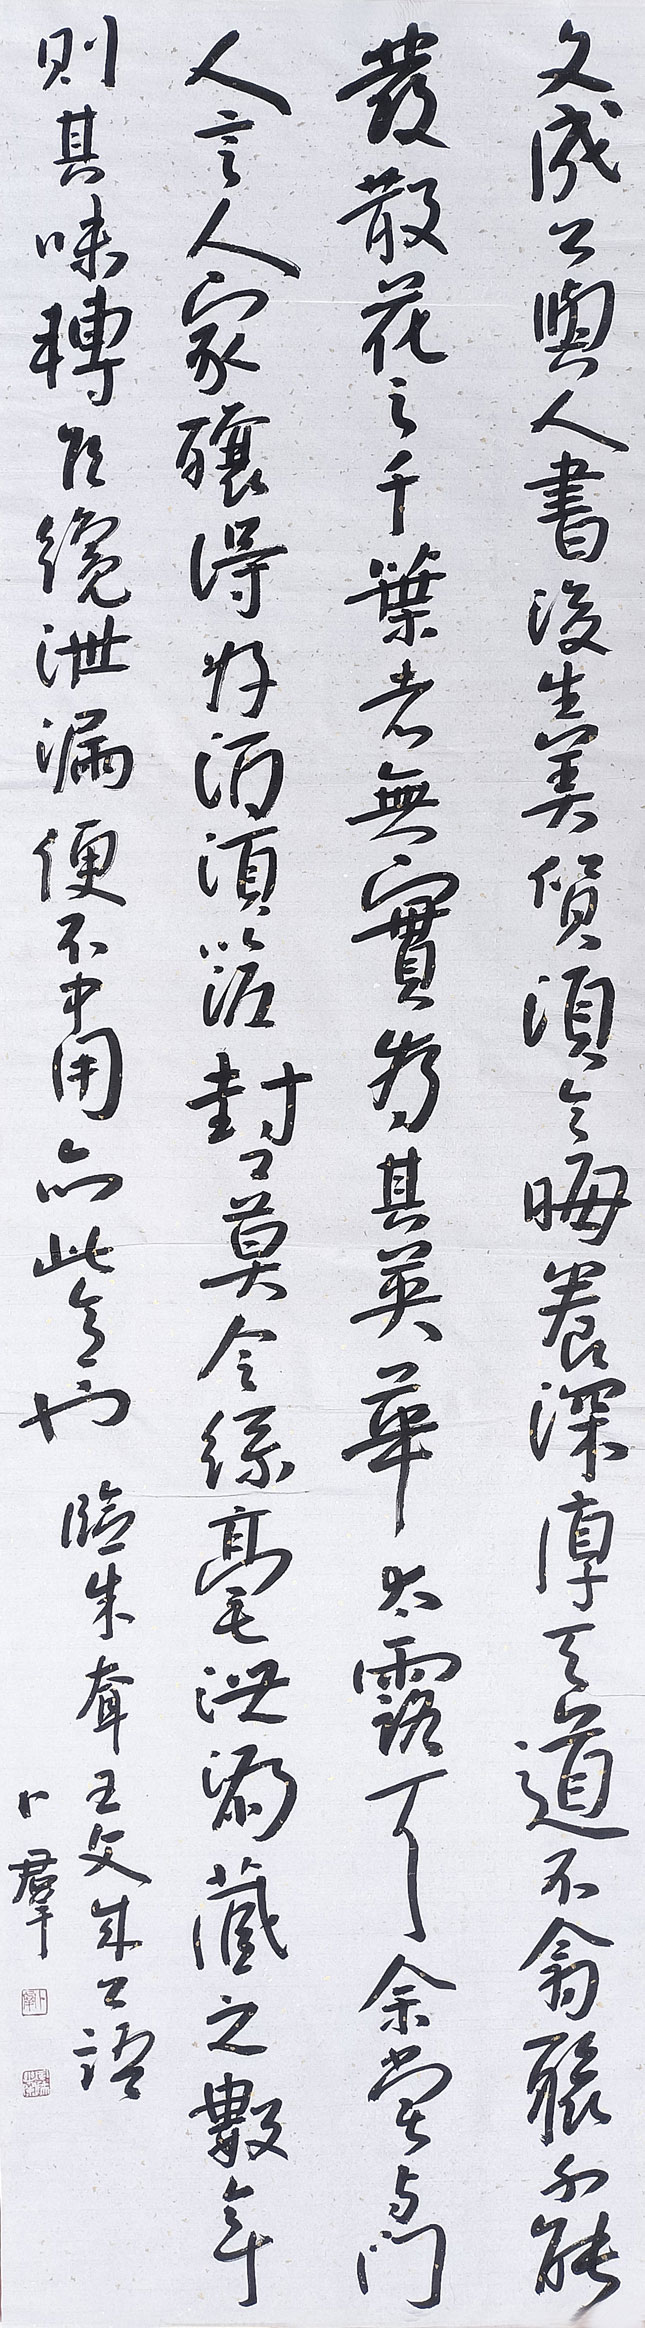 文成公與人書後生美質須令晦養深厚天道不翕聚不能
發散花之千葉者無實為其英華太露耳余嘗與門
人言人家釀得好酒須泥封口莫令絲毫泄漏藏之數年
則其味轉佳纔泄漏便不中用亦此意也
臨朱耷王文成公語
卜羣